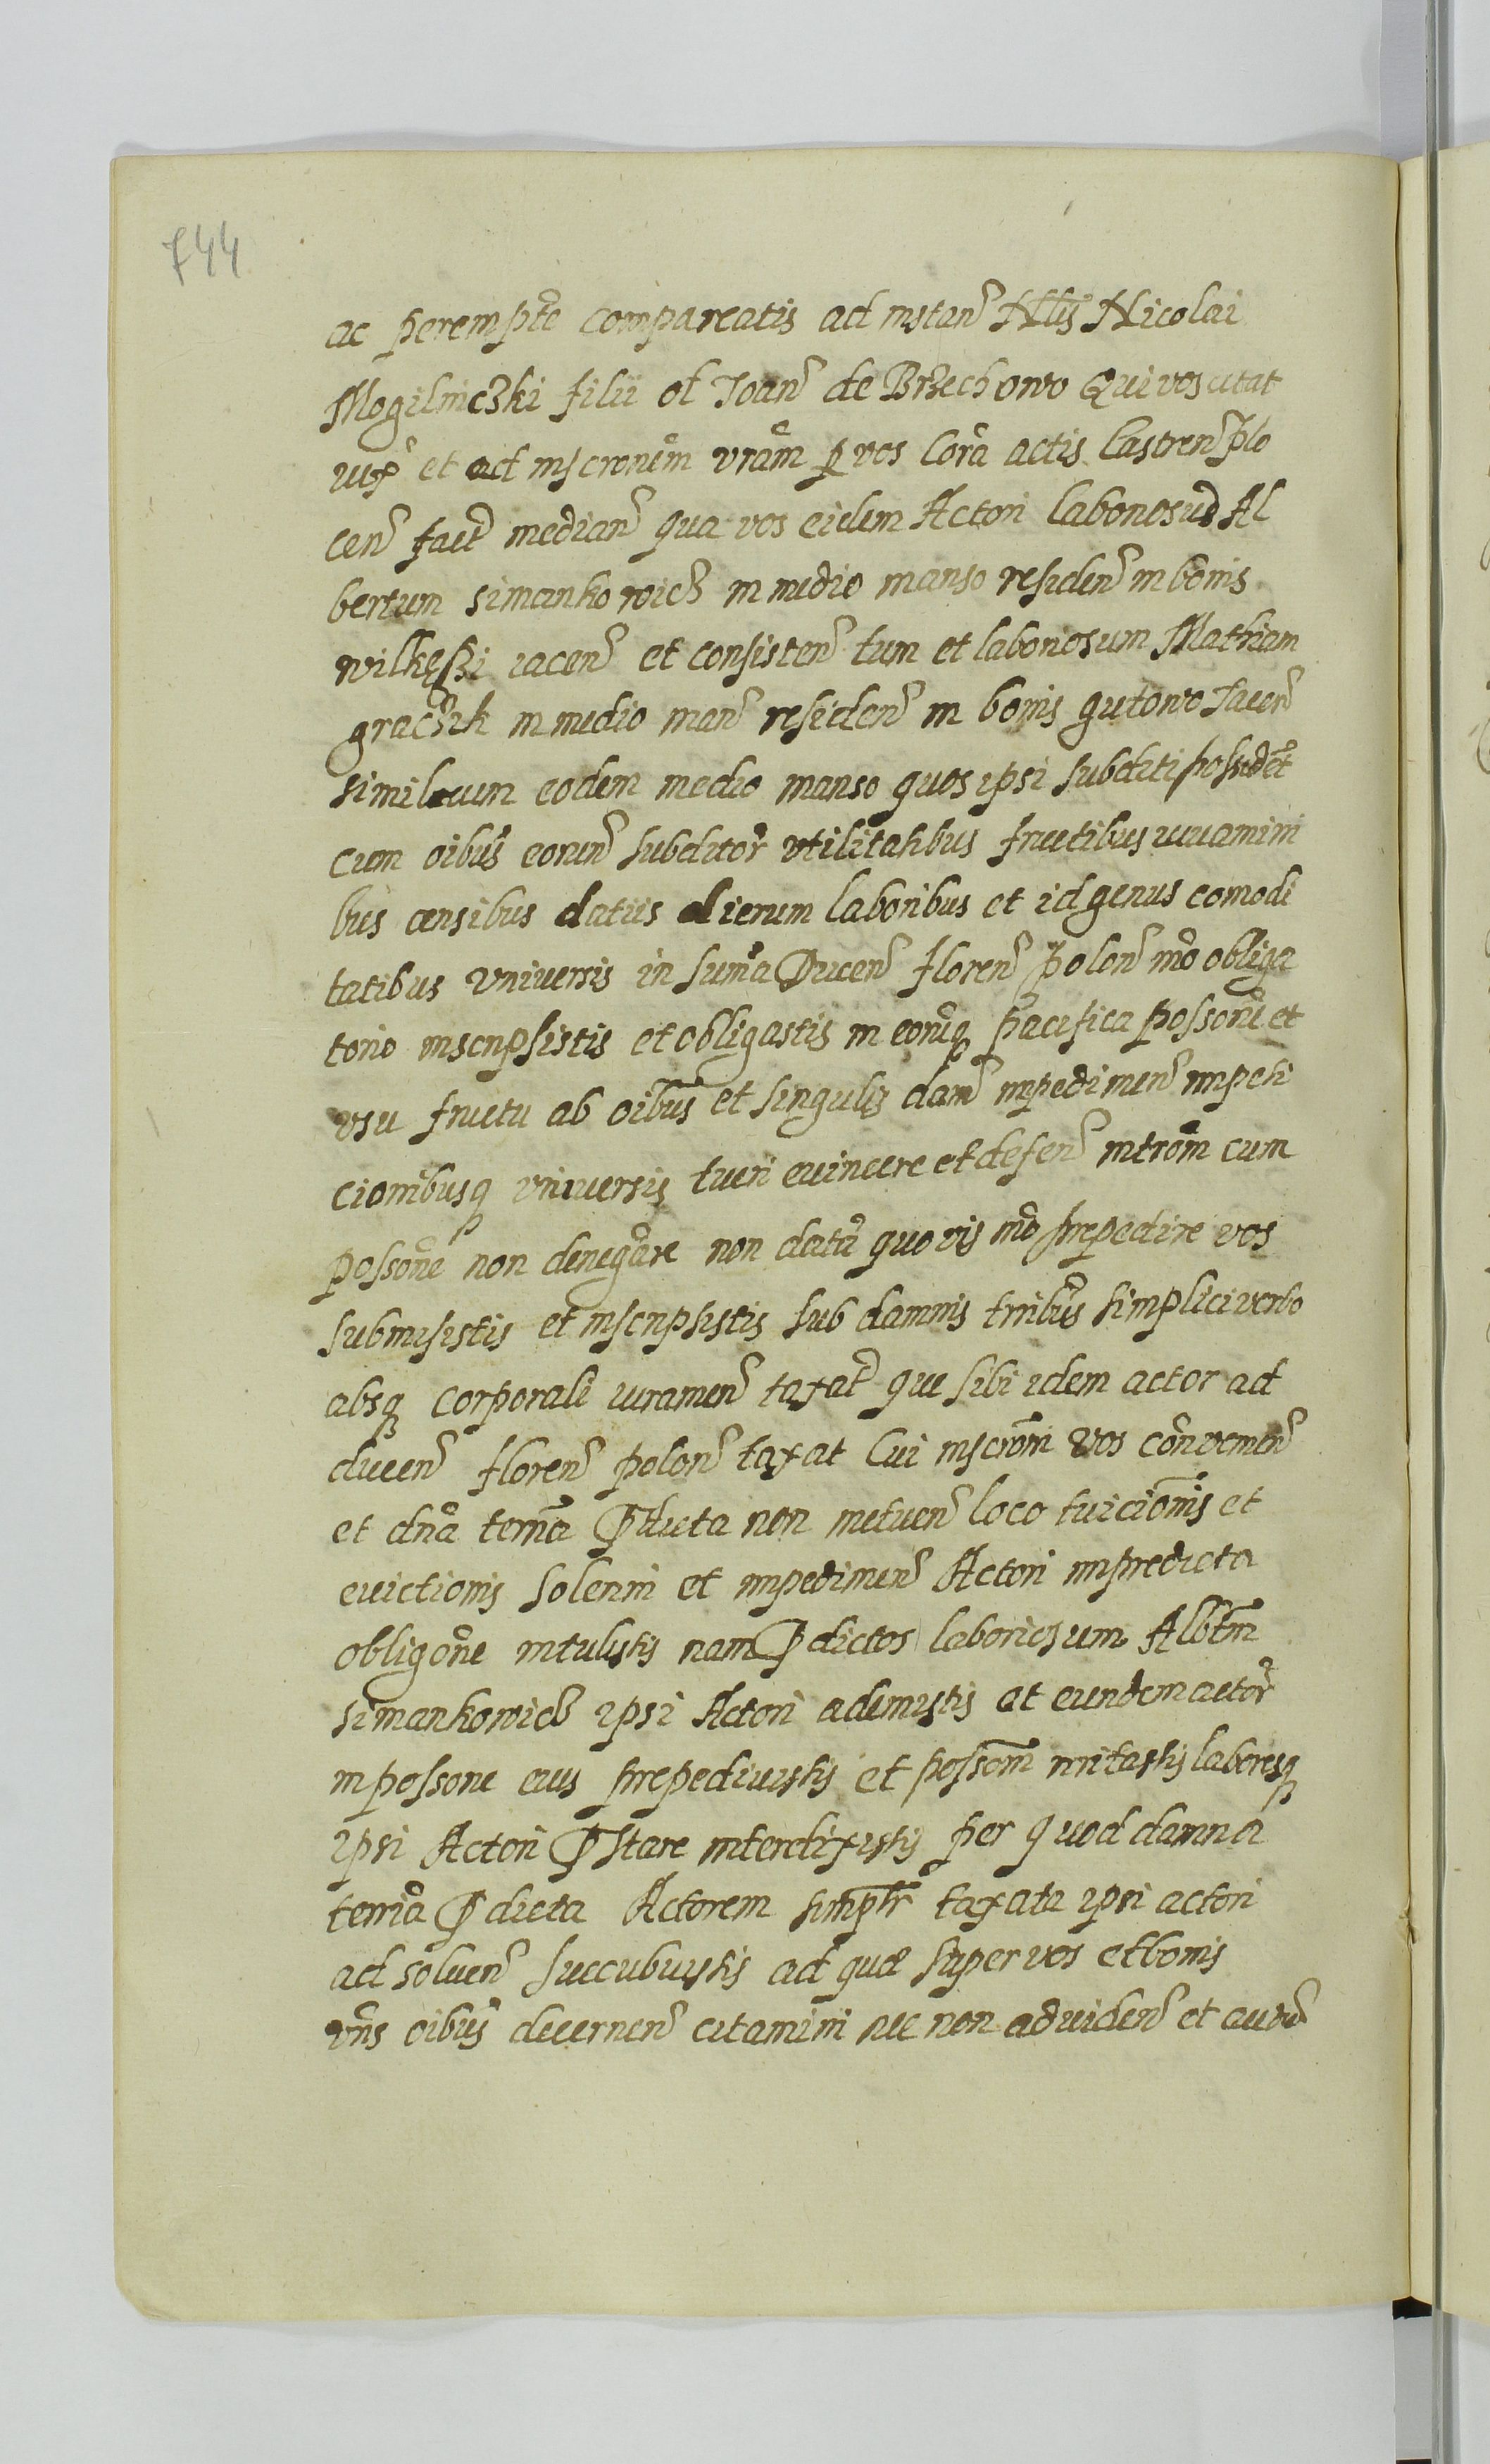 744
ac perempte compareatis ad instan Nblis Nicolai
Mogilniczki filii ol Joan de Brzechowo Qui vos citat
iux et ad inscronem vram p vos Cora actis Castren Plo
cen fact median qua vos eidem Actori laboriosum Al
bertum simankowicz in medio manso residen in bonis
wilkęssi iacen et consisten tum et laboriosum Mathiam
graczik in medio man residen in bonis gutowo Jacen
simil cum eodem medio manso quos ipsi subditi possident
cum oibus eorun subditor vtilitatibus fructibus iuuamini
bus censibus datiis dierum laboribus et id genus comodi
tatibus vniuersis in suma Ducen floren Polon mo obliga
torio inscripsistis et obligastis in eorumq pacifica possone et
vsu fructu ab oibus et singulis dam impedimen impeti
cionibusq vniuersis tueri euincere et defen introm cum
possone non denegare non datu quovis mo prepedire vos
submisistis et inscripsistis sub damnis trribus simplici verbo
absq corporali iuramen taxat que sibi idem actor ad
ducen floren polon taxat Cui inscroni vos convenien
et dna terria pdicta non metuen loco tuicionis et
euictionis solenni et impedimen Actori in predicta
obligone intulistis nam pdictos laboriosum Albtm
simankowicz ipsi Actori ademistis et eundem actor
in possone eius prepedivistis et possom irritastis laboresq
ipsi Actori pstare interdixistis per quod damna
terria pdicta Actorem simplr taxata ipsi actori
ad soluen succubuistis ad quae super vos et bonis
vris oibus decernen citamini nec non ad viden et aud